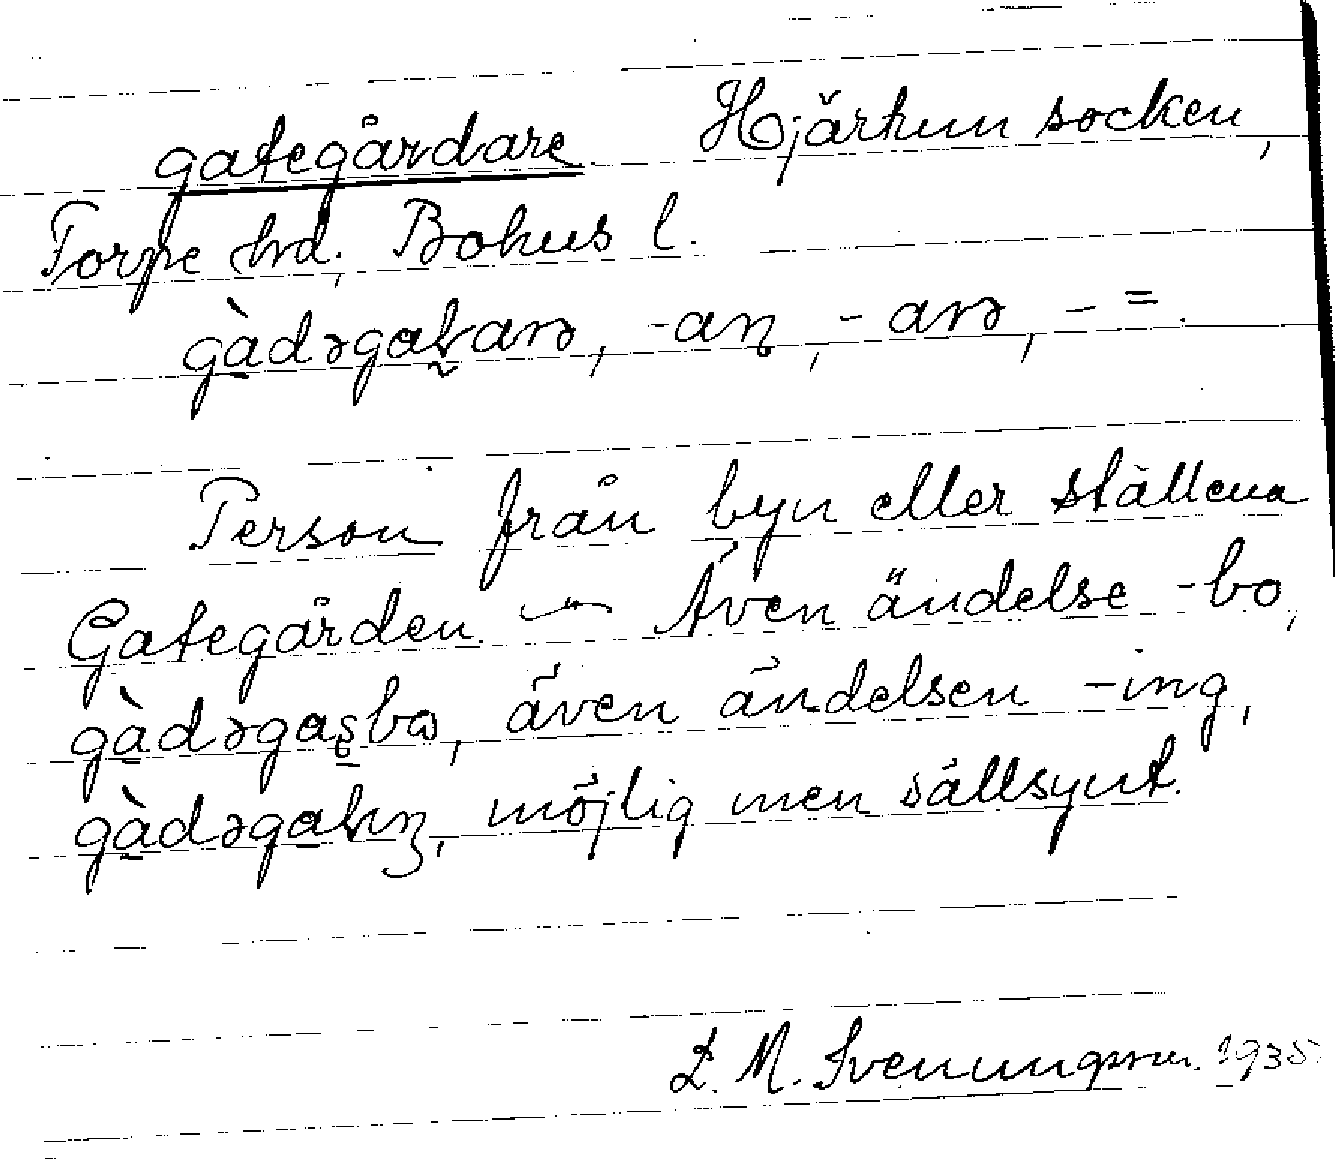 gategårdare Hjärtum socken,
Torpe hd, Bohus l.
gàdəgaɽarə, -aɳ, -arə, - =.
Person från byn eller ställena
Gategården. — Även ändelse -bo,
gàdəgaʂbo, även ändelsen -ing,
gàdəgaɽıŋ, möjlig men sällsynt.
L. M. Svenungsson. 1935.